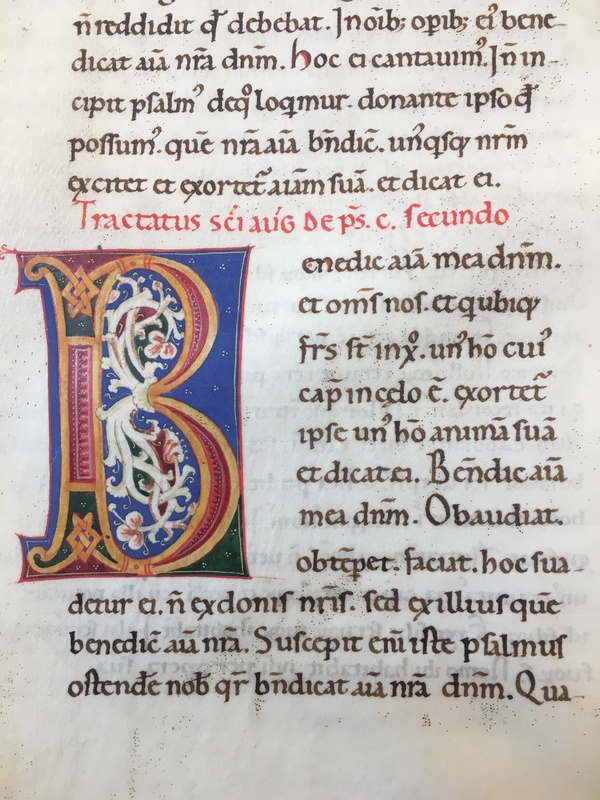 n̄ reddidit qđ debebat. In oīb; opib; eiꝰ bene-
dicat aiā nr̄a dnm̄. hoc ei cantauimꝰ. In̄ in-
cipit psalmꝰ de qͦ loqmur. donante ipso qđ
possumꝰ. quē nr̄a aiā bn̄dic̄. unꝰqsqꝫ nrm̄
excitet et exortet̄ aiam suā. et dicat ei.
Tractatus sc̄i auḡ de ps̄. c. secundo
Benedic aiā mea dnm̄.
et om̄s nos. et q ubiqꝫ
fr̄s st̄ in xͦ. unꝰ hō cuiꝰ
cap̄ in celo ē. exortet̄
ipse unꝰ hō animā suā
et dicat ei. Ben̄dic aiā
mea dnm̄. Obaudiat.
obtēpet. faciat. hoc sua-
detur ei. n̄ ex donis nr̄is. sed ex illius quē
benedic̄ aiā nr̄a. Suscepit eni̅ iste psalmus
ostendē nob̄ qr̄ bn̄dicat aiā nr̄a dnm̄. Qua-